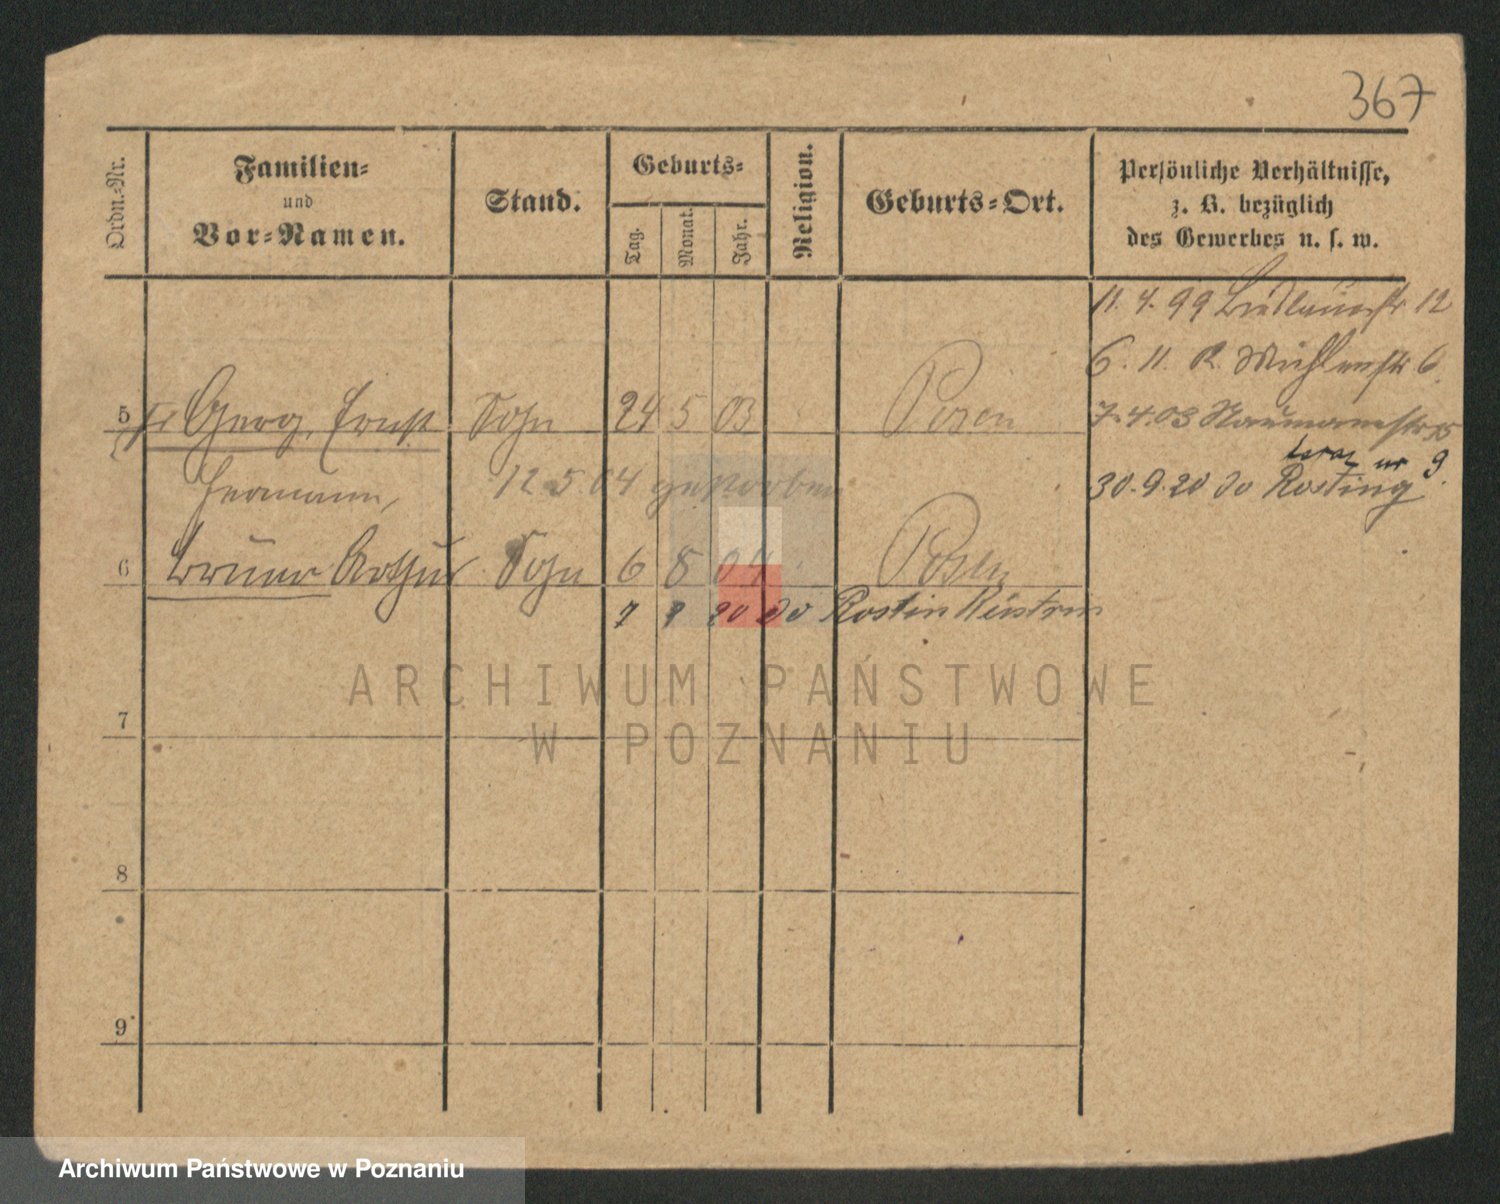 367
Ordn.-Nr.
Familien-
und
Vor-Namen.
Stand.
Geburts-
Tag.
Monat.
Jahr.
Religion.
Geburts-Ort.
Persönliche Verhältnisse,
z. B. bezüglich
des Gewerbes u. s. w.
11. 4. 99 12
6. 11. Mühlenstr 6
5 Georg, Ernst Sohn 24 5 03 Posen
7.4.03 Naumannstr 15
teraz nr 9
Hermann, 12 5 04 gestorben
30.9.20 do Rosting
6 Bruno Arthur Sohn 6 8 04 Posen
7 9 20 do Rostin Küstrin
ARCHIWUM PAŃSTWOWE
W POZNANIU
7
8
9
Archiwum Państwowe w Poznaniu